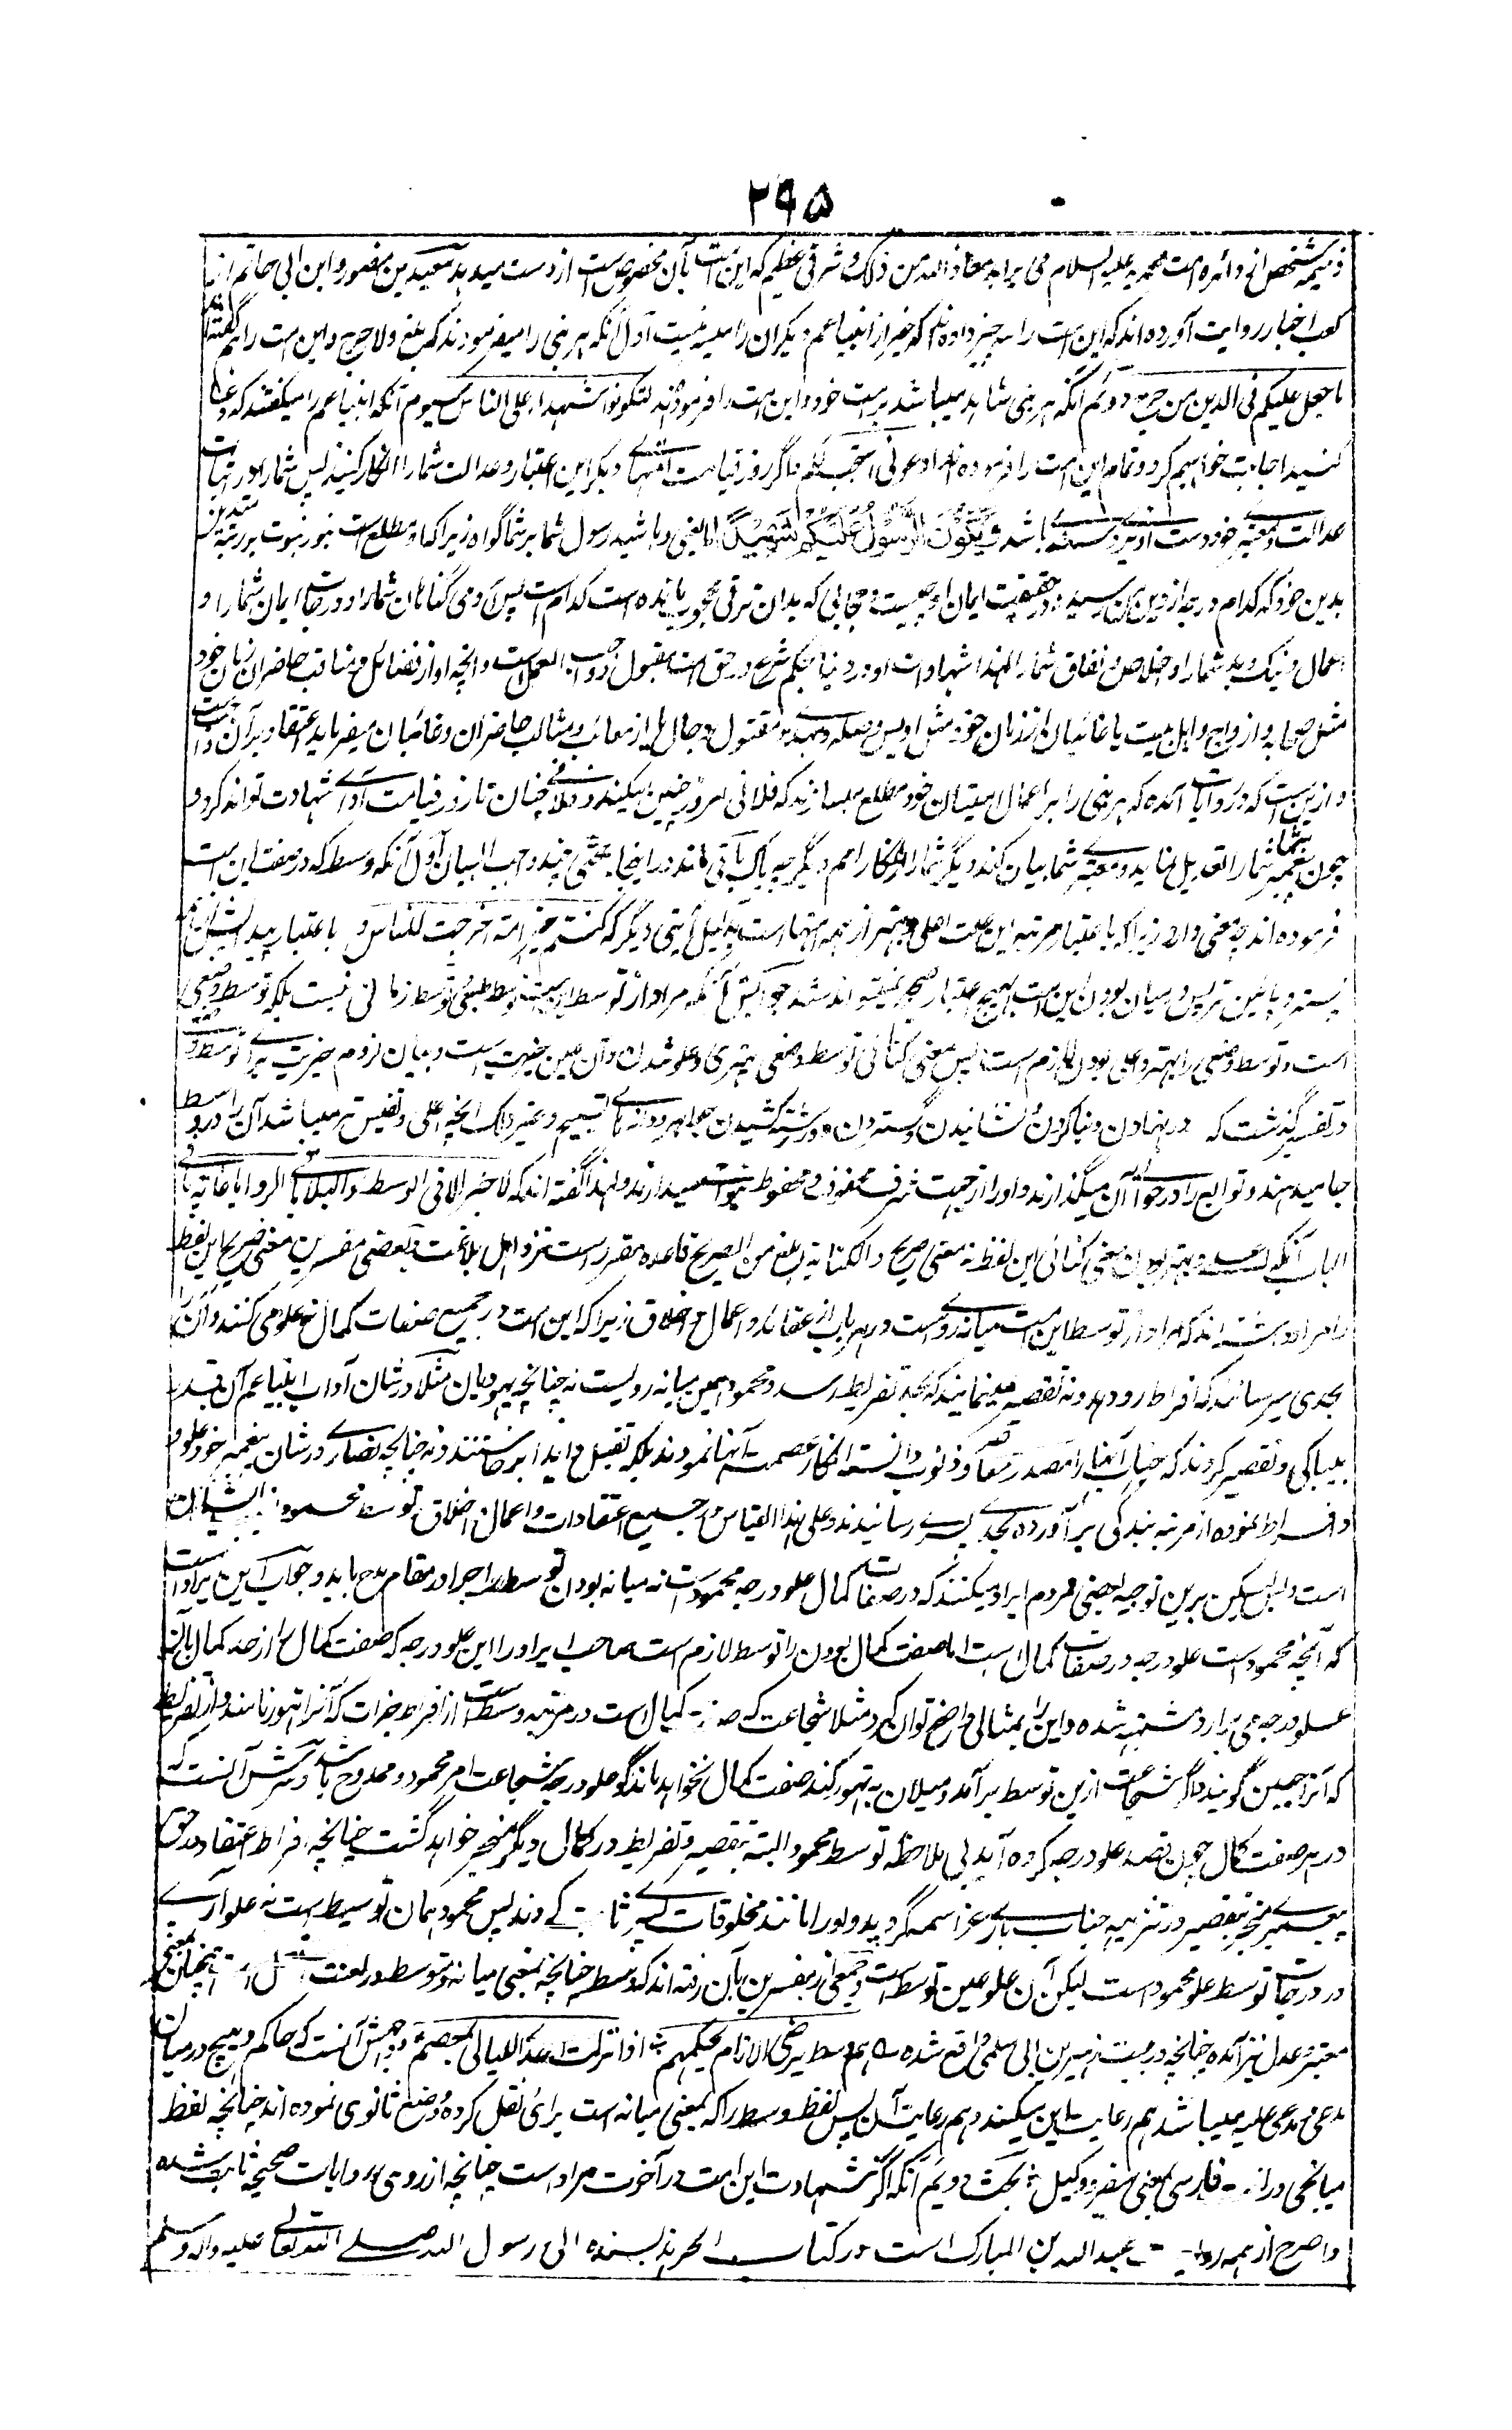 ۲۹۵
ذمیمه شخص از دائره امت محمدیه علیه السلام می برآید معاذ الله من ذلک و شرفی عظیم که این امت بآن مخصوص است از دست میدهد سعید بن منصور و ابن ابی حاتم از
کعب احبار روایت آورده اند که این امت را سه چیز داده اند که غیر از انبیا علیهم دیگران را میسر نیست اول آنکه هر نبی را میفرمودند که بلغ ولا حرج و این امت را هم گفته اند
ما جعل علیکم فی الدین من حرج دوئم آنکه هر نبی شاهد میباشد بر امت خود و این امت را فرموده اند لتکونوا شهداء علی الناس سیوم آنکه انبیا علیهم را میگفتند که دعا
کنید اجابت خواهیم کرد و تمام این امت را فرموده اند ادعونی استجب لکم و اگر روز قیامت امتهای دیگر این اعتبار و عدالت شما را انکار کنند پس شما را در اثبات
عدالت و معتبری خود دست آویزی باشد وَیَکُوْنَ الرَّسُوْلُ عَلَیْکُمْ شَهِیْدًا یعنی و باشد رسول شما بر شما گواه زیرا که او مطلع است بنور نبوت بر رتبه هر متدین
بدین خود که کدام درجه از دین من رسیده و حقیقت ایمان او چیست و حجابی که بدان از ترقی محجوب مانده است کدام است پس او می شناسد گناهان شما را و درجات ایمان شما را و
اعمال نیک و بد شما را و اخلاص و نفاق شما را لهذا شهادت او در دنیا بحکم شرع در حق امت مقبول و واجب العمل است و آنچه او از فضائل و مناقب حاضران زمان خود
مثل صحابه و ازواج و اهل بیت یا غائبان از زمان خود مثل اویس و صله و مهدی و مقتول دجال یا از معائب و مثالب حاضران و غائبان میفرماید اعتقاد برآن واجب است
و ازین است که در روایات آمده که هر نبی را بر اعمال امتیان خود مطلع میسازند که فلانی امروز چنین میکند و فلانی چنان تا روز قیامت ادای شهادت تواند کرد و
چون پیغمبر شما شما را تعدیل نماید و معتبری شما بیان کند دیگر شما را از انکار امم دیگر چه باک باقی ماند در اینجا بحثی چند واجب البیان اول آنکه وسط که در صفت این امت
فرموده اند چه معنی دارد زیرا که باعتبار مرتبه این امت اعلی و بهتر از همه امتهاست بدلیل آیتی دیگر که کنتم خیر امة اخرجت للناس و باعتبار پیدایش
پستر و پائین تر پس در میان بودن این امت بهیچ اعتبار صحیح نمیتواند شد جوابش آنکه مراد از توسط این امت توسط طبعی و توسط زمانی نیست بلکه توسط وضعی
است و توسط وضعی را بهتر و اعلی بودن لازم است پس معنی کنائی توسط وضعی بهتری و علو شدن و آن عین خیریت است و بیان لزوم خیریت برای توسط
در تفسیر گذشت که در نهادن و بنا کردن و نشانیدن و گستردن و در رشته کشیدن جواهر و دانه های تسبیح و غیر ذلک آنچه اعلی و نفیس تر میباشد آن را در وسط
جا میدهند و توابع را در حوالی آن میگذارند و او را از جهت شرف محفوف و محفوظ میدارند و لهذا گفته اند که لا خیر الا فی الوسط
الباب آنکه اعلی و بهتر بودن معنی کنائی این لفظ نه معنی صریح و الکنایة ابلغ من الصریح قاعده مقرر است نزد اهل بلاغت و بعضی مفسرین معنی صریح این لفظ
را مراد داشته اند که مراد از توسط این امت میانه روی است در هر باب از عقائد و اعمال و اخلاق زیرا که این امت در جمیع صفات کمال علو می کنند و آن را
بحدی میرسانند که افراط رو دهد و نه تقصیر مینمایند که بحد تفریط رسد و محمود همین میانه روی است نه چنانچه یهودیان مثلا در شان آداب انبیا علیهم آن قدر
بیباکی و تقصیر کردند که جناب آنها را مصدر معاصی و ذنوب دانسته انکار عصمت آنها نمودند بلکه بقتل و ایذا برخاستند و نه چنانچه نصاری در شان پیغمبر خود علو
و افراط نموده از مرتبه بندگی برآورده بحد پسری رسانیدند و علی هذا القیاس در جمیع اعتقادات و اعمال و اخلاق توسط محمود نصیب ایشان
است و لیکن برین توجیه بعضی مردم ایراد میکنند که در صفات کمال علو درجه محمود است نه میانه بودن توسط را چرا در مقام مدح باید و جواب این ایراد آنست
که آنچه محمود است علو درجه در صفات کمال است اما صفت کمال بودن را توسط لازم است صاحب ایراد را این علو درجه که صفت کمال را از حد کمال بآن
علو درجه می برآرد مشتبه شده و این را بمثالی واضح توان کرد مثلا شجاعت که صفت کمال است در مرتبه وسط است از افراط جرات که آنرا تهور نامند و از تفریط
که آنرا جبن گویند و اگر شجاعت ازین توسط برآمد و میلان به تهور کند صفت کمال نخواهد ماند گو علو درجه شجاعت امر محمود و ممدوح باشد و سرش آنست که
در هر صفت کمال چون قصد علو درجه کرده آید بی ملاحظه توسط محمود البته بتقصیر و تفریط در کمالی دیگر منجر خواهد گشت چنانچه افراط اعتقاد در حق
پیغمبری منجر بتقصیر در تنزیه جناب باری عز اسمه گردید و او را مانند مخلوقات پسر ثابت کردند پس محمود همان توسط است نه علو آری
در درجات توسط علو محمود است لیکن آن علو عین توسط است و جمعی از مفسرین بآن رفته اند که وسط چنانچه بمعنی میانه و متوسط در لغت مستعمل است همچنان بمعنی
معتبر و عدل نیز آمده چنانچه در بیت زهیر بن ابی سلمی واقع شده هم وسط یرضی الانام بحکمهم و وجهش آنست که حاکم و پنچ در میان
مدعی و مدعی علیه میباشد هم رعایت این میکند و هم رعایت آن پس لفظ وسط را که بمعنی میانه است برای نقل کرده وضع ثانوی نموده اند چنانچه لفظ
میانجی در فارسی بمعنی سفیر و وکیل بحث دویم آنکه اگر شهادت این امت در آخرت مراد است چنانچه از روی روایات صحیحه ثابت شده
و اصرح از همه روایت عبد الله بن المبارک است در کتاب الزهد بسنده الی رسول الله صلی الله تعالی علیه و آله وسلم